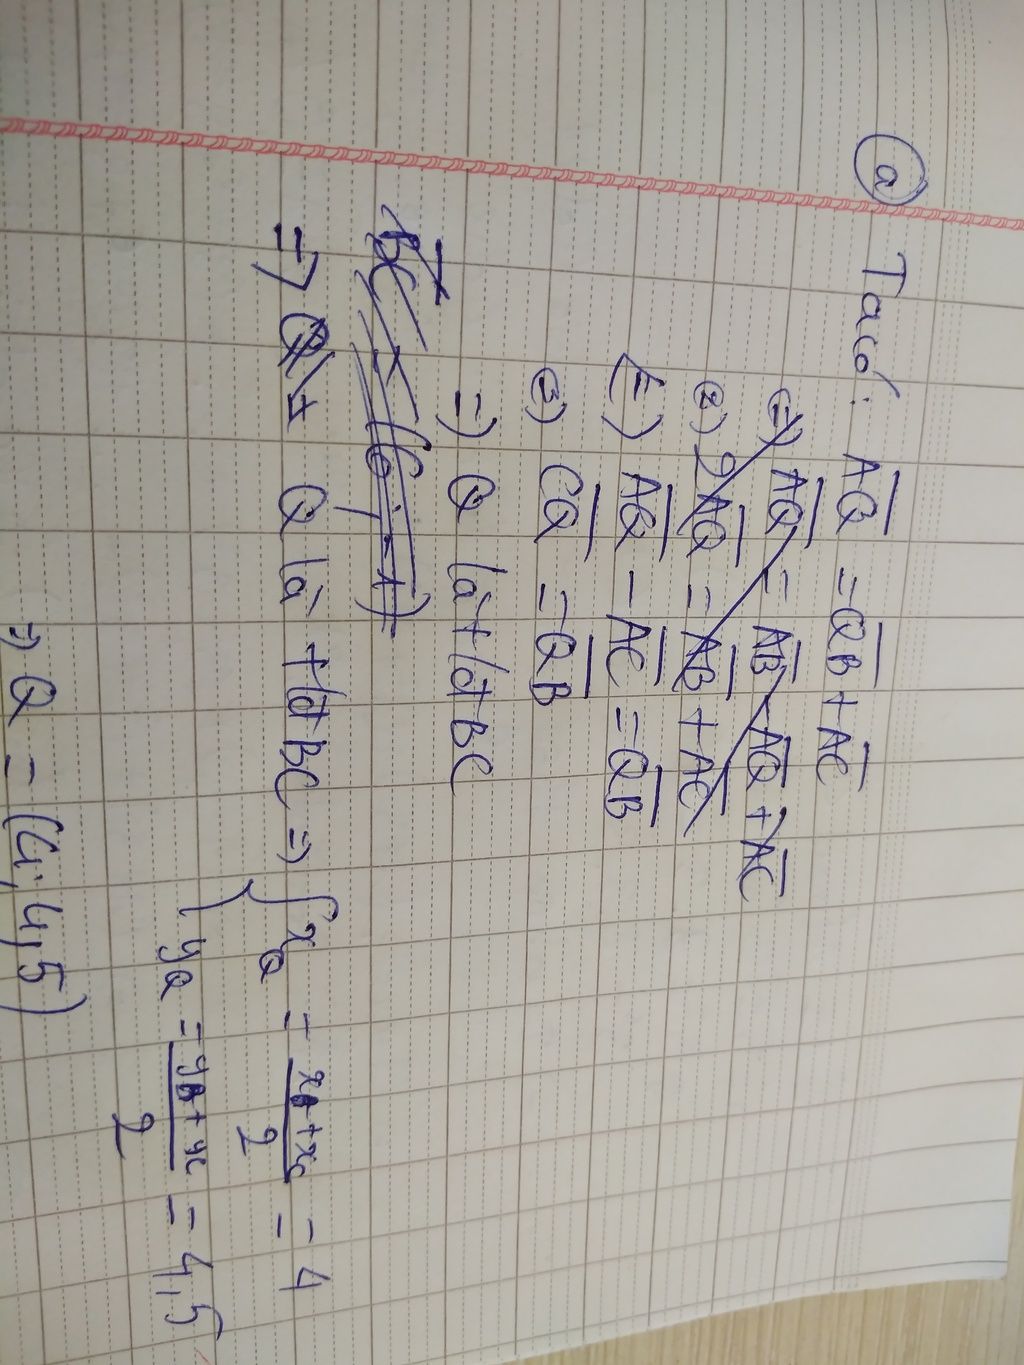 a Ta có: AQ = QB + AC
(=) AQ = AB - AQ + AC
(=) 2AQ = AB + AC
(=) AQ - AC = QB
(=) CQ = QB
=) Q là tđ BC
BC
=> Q là tđ BC =) { xQ = xB + xC / 2 = 4
yQ = yB + yC / 2 = 4,5
=) Q = (4; 4,5)